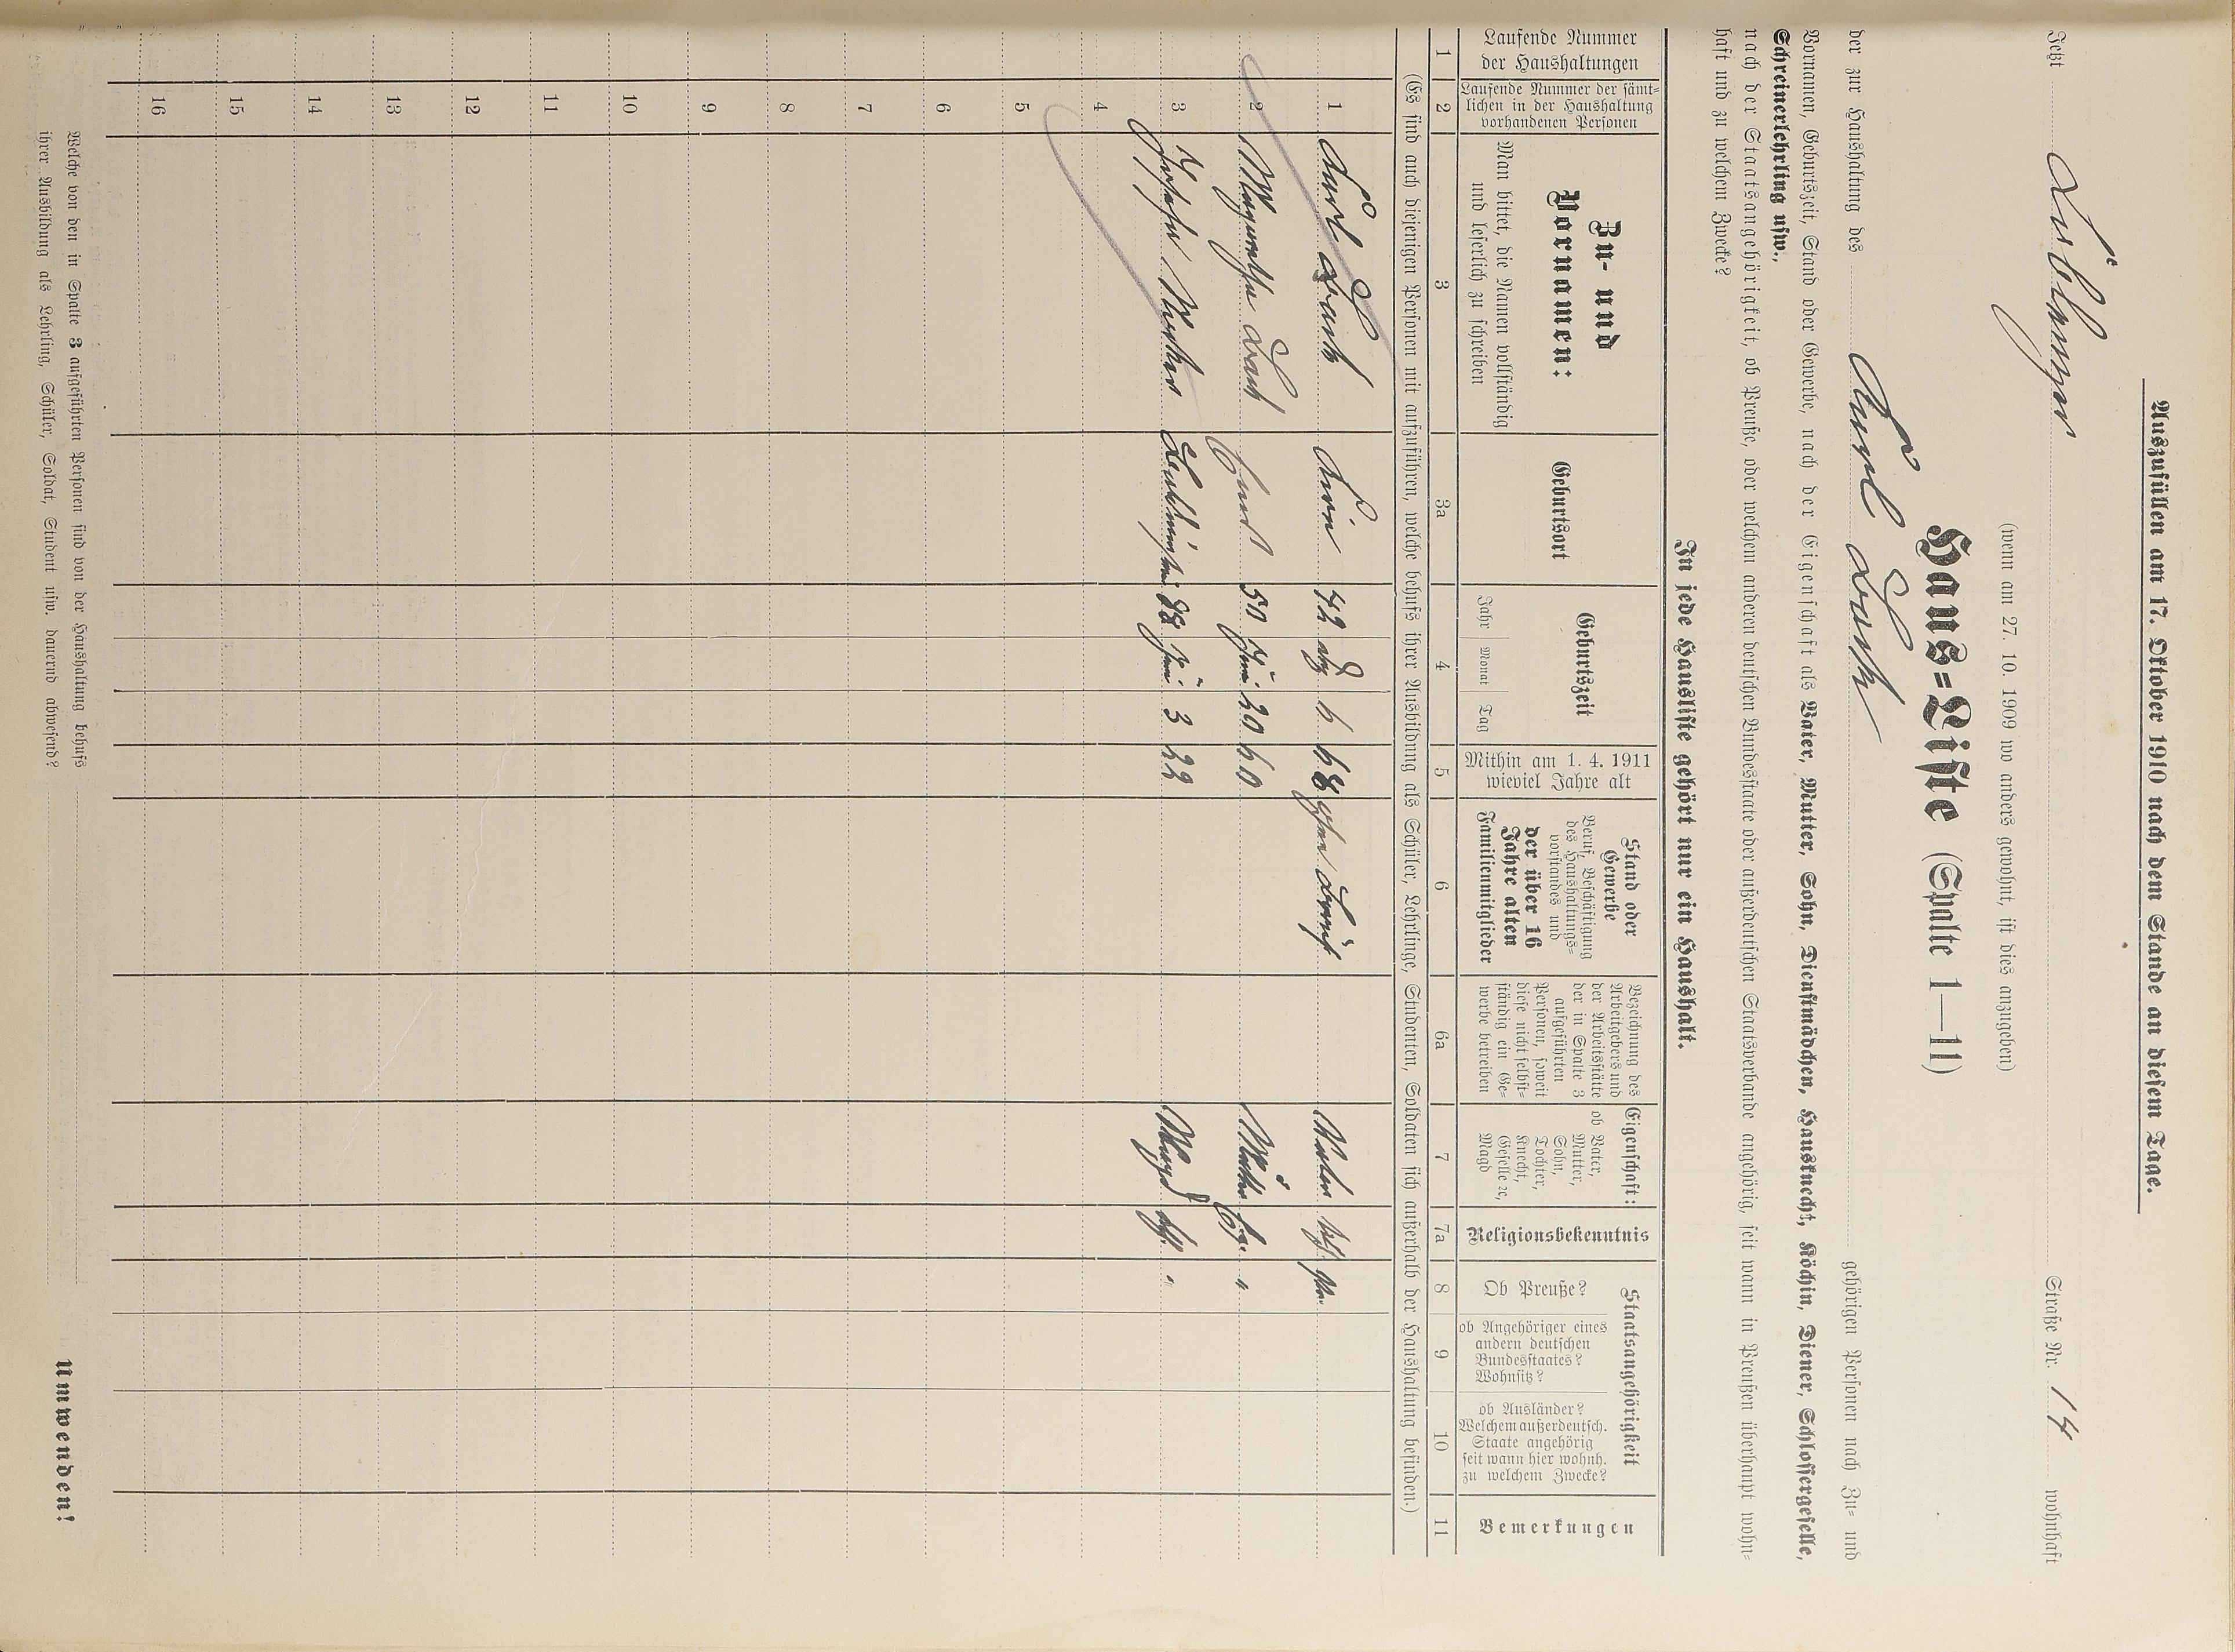 Auszufüllen am 17. Oktober 1910 nach dem Stande an diesem Tage.
Jetzt Straße Nr. 14 wohnhaft
(wenn am 27. 10. 1909 wo anders gewohnt, ist dies anzugeben)
Haus=Liste (Spalte 1—11)
der zur Haushaltung des Karl gehörigen Personen nach Zu= und
Vornamen, Geburtszeit, Stand oder Gewerbe, nach der Eigenschaft als Vater, Mutter, Sohn, Dienstmädchen, Hausknecht, Köchin, Diener, Schlossergeselle,
Schreinerlehrling usw.,
nach der Staatsangehörigkeit, ob Preuße, oder welchen anderen deutschen Bundesstaate oder außerdeutschen Staatsverbande angehörig, seit wann in Preußen überhaupt wohn=
haft und zu welchen Zwecke?
In jede Hausliste gehört nur ein Haushalt.
Laufende Nummer der Haushaltungen
Laufende Nummer der sämt=
lichen in der Haushaltung
vorhandenen Personen
Zu- und
Vornamen:
Man bittet, die Namen vollständig
und leserlich zu schreiben
Geburtsort
Geburtszeit
Jahr Monat Tag
Mithin am 1. 4. 1911
wieviel Jahre alt
Stand oder
Gewerbe
Beruf, Beschäftigung
des Haushaltungs=
vorstandes und
der über 16
Jahre alten
Familienmitglieder
Bezeichnung des
Arbeitgebers und
der Arbeitsstätte
der in Spalte 3
aufgeführten
Personen, soweit
diese nicht selbst=
ständig ein Ge=
werbe betreiben
Eigenschaft:
ob Vater,
Mutter,
Sohn,
Tochter,
Knecht,
Geselle ec,
Magd
Religionsbekenntnis
Staatsangehörigkeit
Ob Preuße?
ob Angehöriger eines
andern deutschen
Bundesstaates?
Wohnsitz?
ob Ausländer?
Welchem außerdeutsch.
Staate angehörig
seit wann hier wohnh.
zu welchem Zwecke?
Bemerkungen
1 2 3 3a 4 5 6 6a 7 7a 8 9 10 11
(Es sind auch diejenigen Personen mit aufzuführen, welche behufs ihrer Ausbildung als Schüler, Lehrlinge, Studenten, Soldaten sich außerhalb der Haushaltung befinden.)
1 Karl 42 6 68 Vater
2 Margarethe 50 Juni 20 60 Mutter Ev. "
3 88 Juni 3 22 Magd "
4
5
6
7
8
9
10
11
12
13
14
15
16
Welche von den in Spalte 3 aufgeführten Personen sind von der Haushaltung behufs
ihrer Ausbildung als Lehrling, Schüler, Soldat, Student usw. dauernd abwesend?
Umwenden!